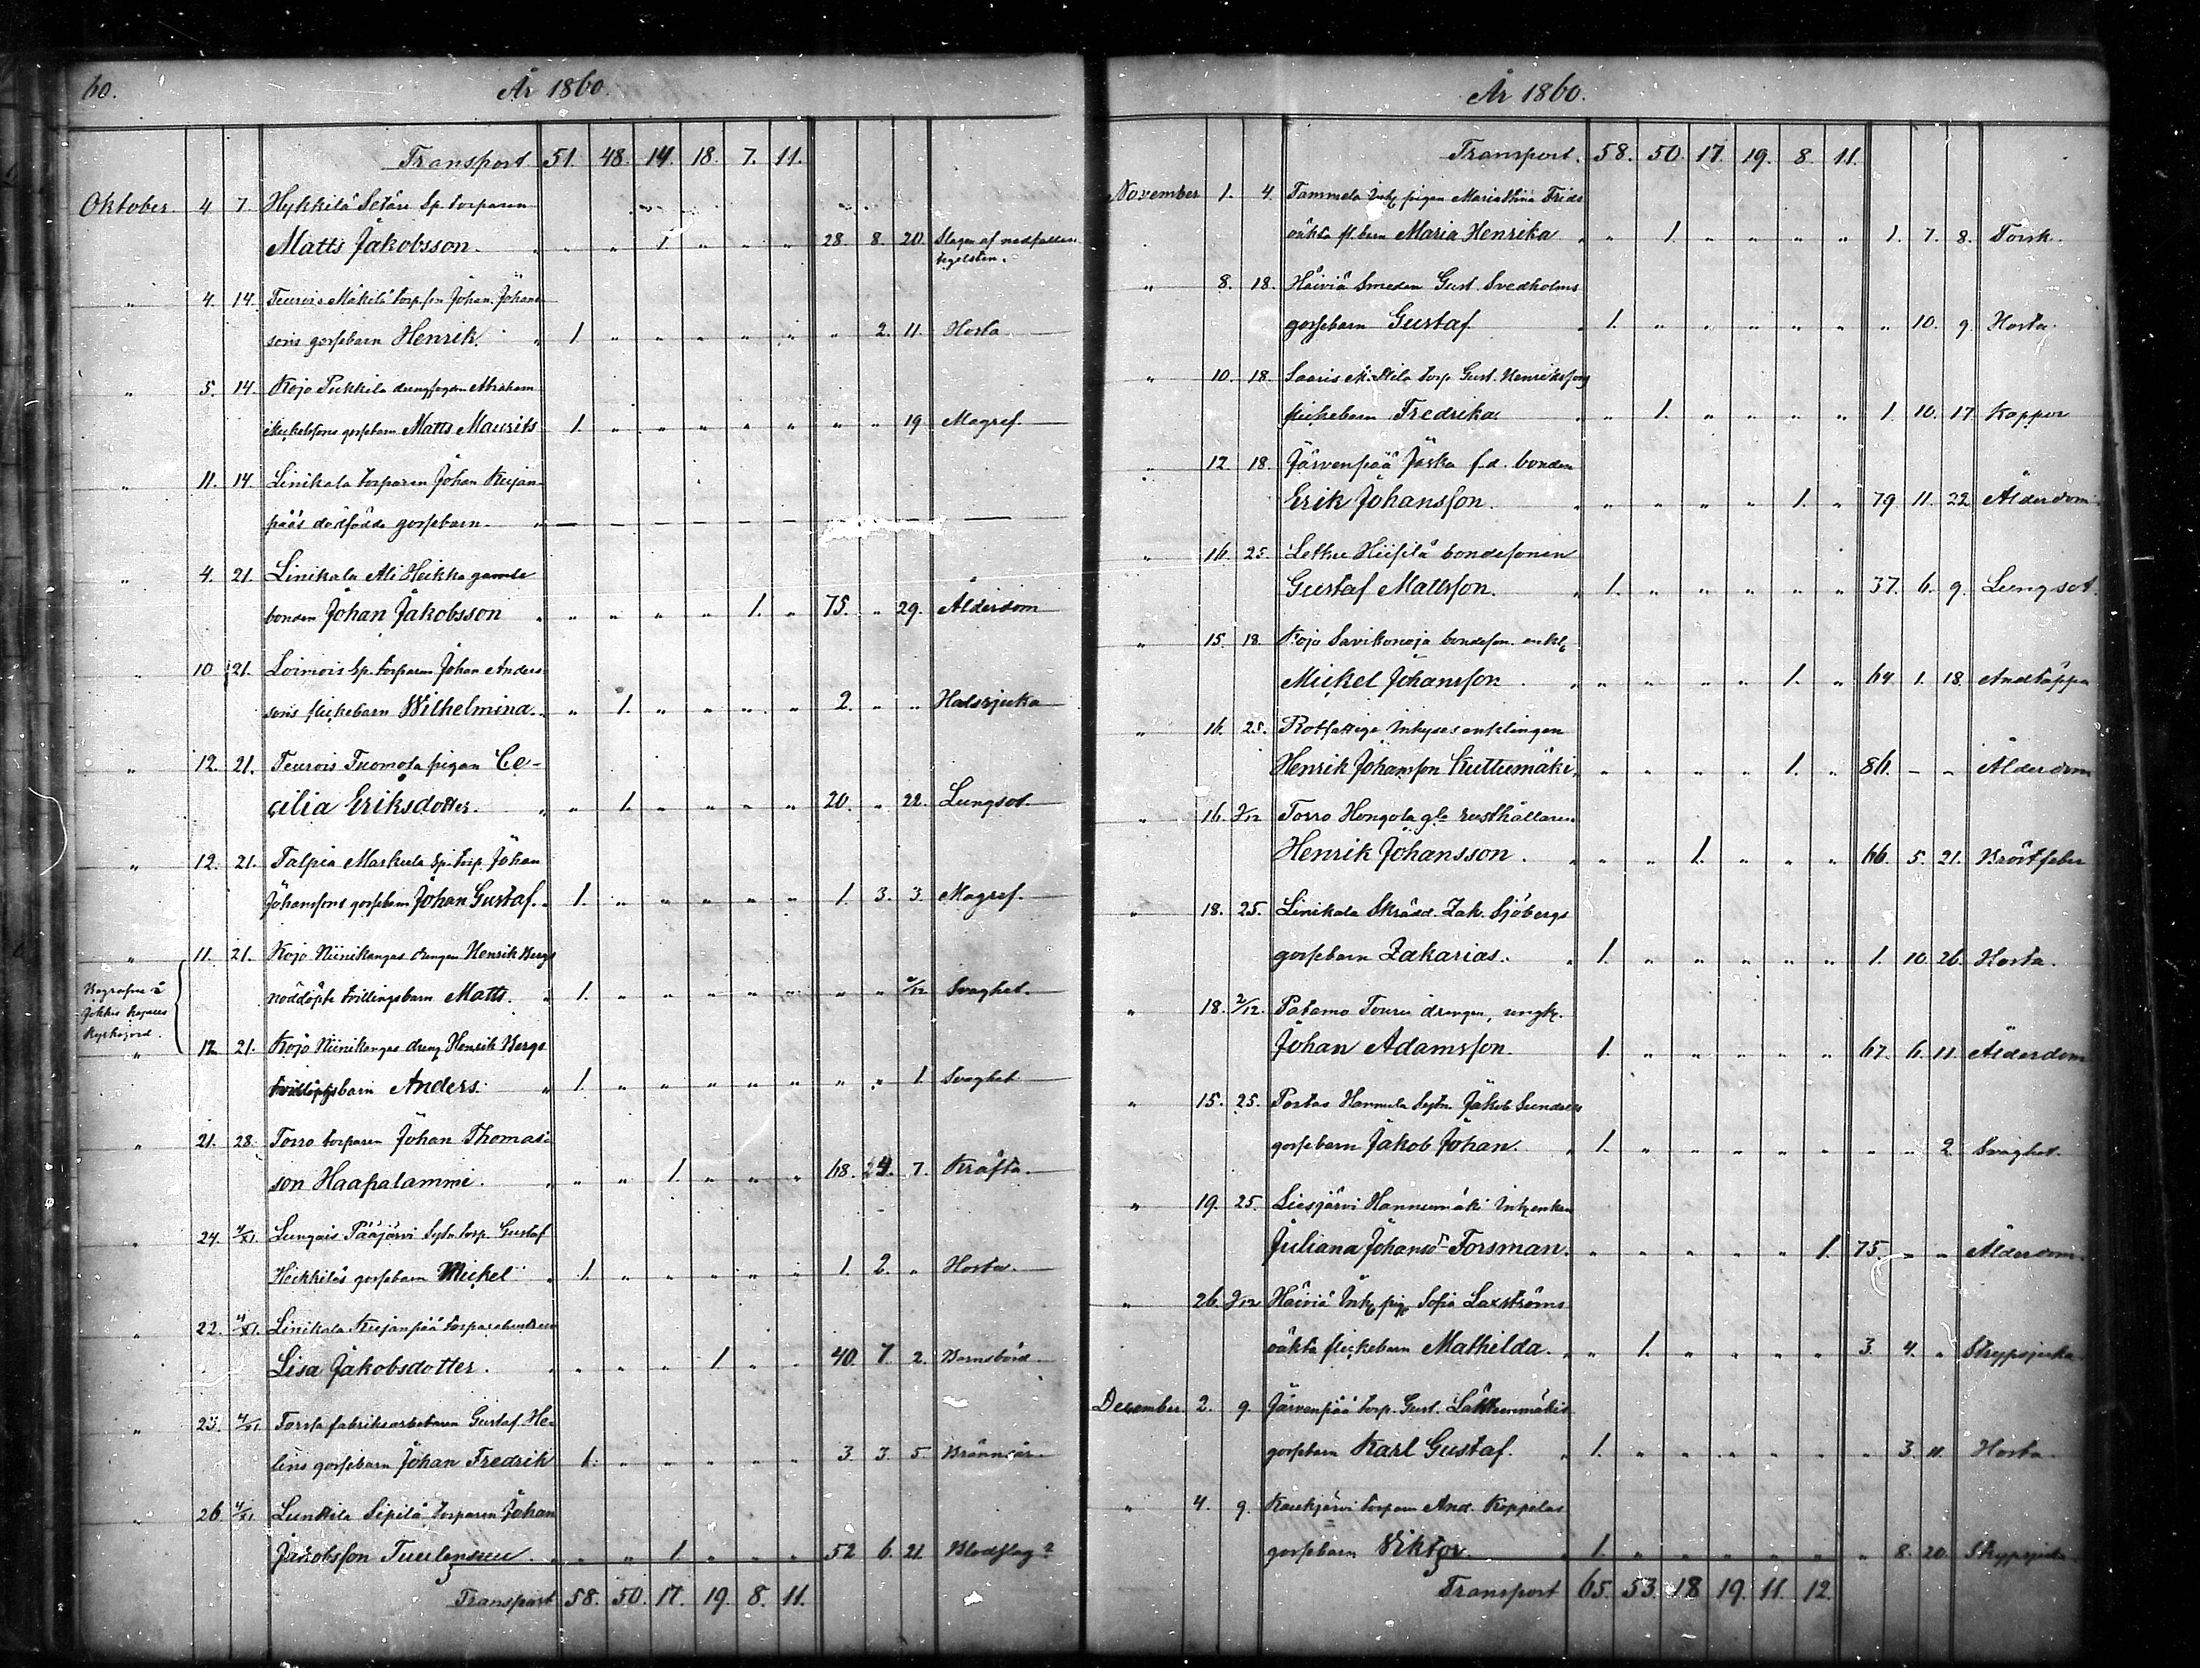 60.
År 1860.
Transport 51. 48. 14. 18. 7. 11.
Oktober. 4 7. Hykkilä Setäre Sp. torparen
Matts Jakobsson. " " " 1 " " " 28. 8. 20. Slagen af nedfallen
tegelsten.
" 4. 14. Teurois Mäkilä torp.son Johan Johans-
sons gossebarn Henrik. " 1. " " " " " " 2. 11. Hosta
" 5. 14. Kojo Pukkila drengsegen Abraham
Mickelsons gossebarn Matts Maurits 1. " " " " " " " 19 Magref.
" 11. 14. Linikala torparen Johan Kujan-
pääs dödfödde gossebarn.
" 4. 21. Linikala Ali Heikka gamle
bonden Johan Jakobsson " " " " " 1. " 75. " 29. Ålderdom
" 10 21. Loimois Sp. torparen Johan Anders-
sons flickebarn Wilhelmina. " " 1. " " " " 2. " " Halssjuka
" 12. 21. Teurois Tuomola pigan Ce-
cilia Eriksdotter. " " 1. " " " " 20. " 22. Lungsot.
" 12. 21. Talpia Markula Sp. torp. Johan
Johanssons gossebarn Johan Gustaf. " 1. " " " " " 1. 3. 3. Magref.
" 11. 21. Kojo Niinikangas drengen Henrik Bergs
Begrafne å
Jokkis kapells
kyrkogård.
nöddöpte tvillingebarn Matts. " 1. " " " " " " " Svaghet.
" 12 21. Kojo Niinikangas dreng Henrik Bergs
barn Anders. " 1. " " " " " " " 1. Svaghet
" 21. 28. Torro torparen Johan Thomas-
son Haapalammi. " " " 1. " " " 68. 7. Kräfta.
" 24. 4/XI. Lungais Pääjärvi Sytn. torp. Gustaf
Heikkiläs gossebarn Mickel " 1. " " " " " 1. 2. " Hosta.
" 22. 4/XI. Linikala Kujanpää torparehustrun
Lisa Jakobsdotter. " " " " 1 " " 40. 7. 2. Barnsbörd.
" 23. 4/XI. Forssa fabriksarbetaren Gustaf He-
lins gossebarn Johan Fredrik 1. " " " " " 3. 3. 5. Brännsår.
" 26. 4/XI. Lunkila Sipilä torparen Johan
Jakobsson Tuulensuu. " " " 1. " " " 52 6. 21. Blodslag?
Transport 58. 50. 17. 19. 8. 11.
År 1860.
Transport. 58. 50. 17. 19. 8. 11.
November 1. 4. Tammela Inh. pigan Maria Stina Frids
oäkta fl.barn Maria Henrika " " 1. " " " " 1. 7. 8. Torsk.
" 8. 18. Häiviä Smeden Gust. Svedholms
gossebarn Gustaf. " 1. " " " " " " 10. 9. Hosta.
" 10. 18. Saaris torp. Gust. Henrikssons
flickebarn Fredrika " " 1. " " " " 1. 10. 17. Koppor
" 12 18. Järvenpää Jaska f.d. bonden
Erik Johansson. " " " " " 1. " 79 11. 22. Ålderdom.
" 16. 25. Lethu Hiisilä bondesonen
Gustaf Mattsson. " 1. " " " " " 37. 6. 9. Lungsot.
" 15. 18. Kojo Savikonoja bondeson. enkl.
Mickel Johansson. " " " " " 1. " 64. 1. 18. Andtäppa
" 16. 25. Rotfattige Inhyses enklingen
Henrik Johansson Kuttumäki. " " " " " 1. " 86. - " Ålderdom
" 16. 2/12 Torro Hongola gle rusthållaren
Henrik Johansson. " " " 1. " " " 66. 5. 21. Bröstfeber
" 18. 25. Linikala Skrädd. Zak. Sjöbergs
gossebarn Zakarias. " 1. " " " " " 1. 10. 26. Hosta.
" 18. 2/12. Patamo Touru drengen, ungk.
Johan Adamsson. 1. " " " " " 67. 6. 11. Ålderdom
" 15. 25. Portas Hannula Sytn. Jakob Sundells
gossebarn Jakob Johan. " 1. " " " " " " " 2. Svaghet.
" 19. 25. Liesjärvi Hannumäki Inh. enkan
Juliana Johansdr Forsman. " " " " " " 1. 75. " " Ålderdom.
" 26. 2/12 Häiviä Inh. pig. Sofia Laxströms
oäkta flickebarn Mathilda. " " 1. " " " " 3. 4. " Strypsjuka
December 2. 9. Järvenpää torp. Gust.
gossebarn Karl Gustaf. " 1. " " " " " " 3. 11. Hosta.
" 4. 9. Kaukjärvi torparen And. Koppelas
gossebarn Viktor. " 1. " " " " " " 8. 20. Strypsjuka.
Transport 65. 53. 18 19. 11. 12.